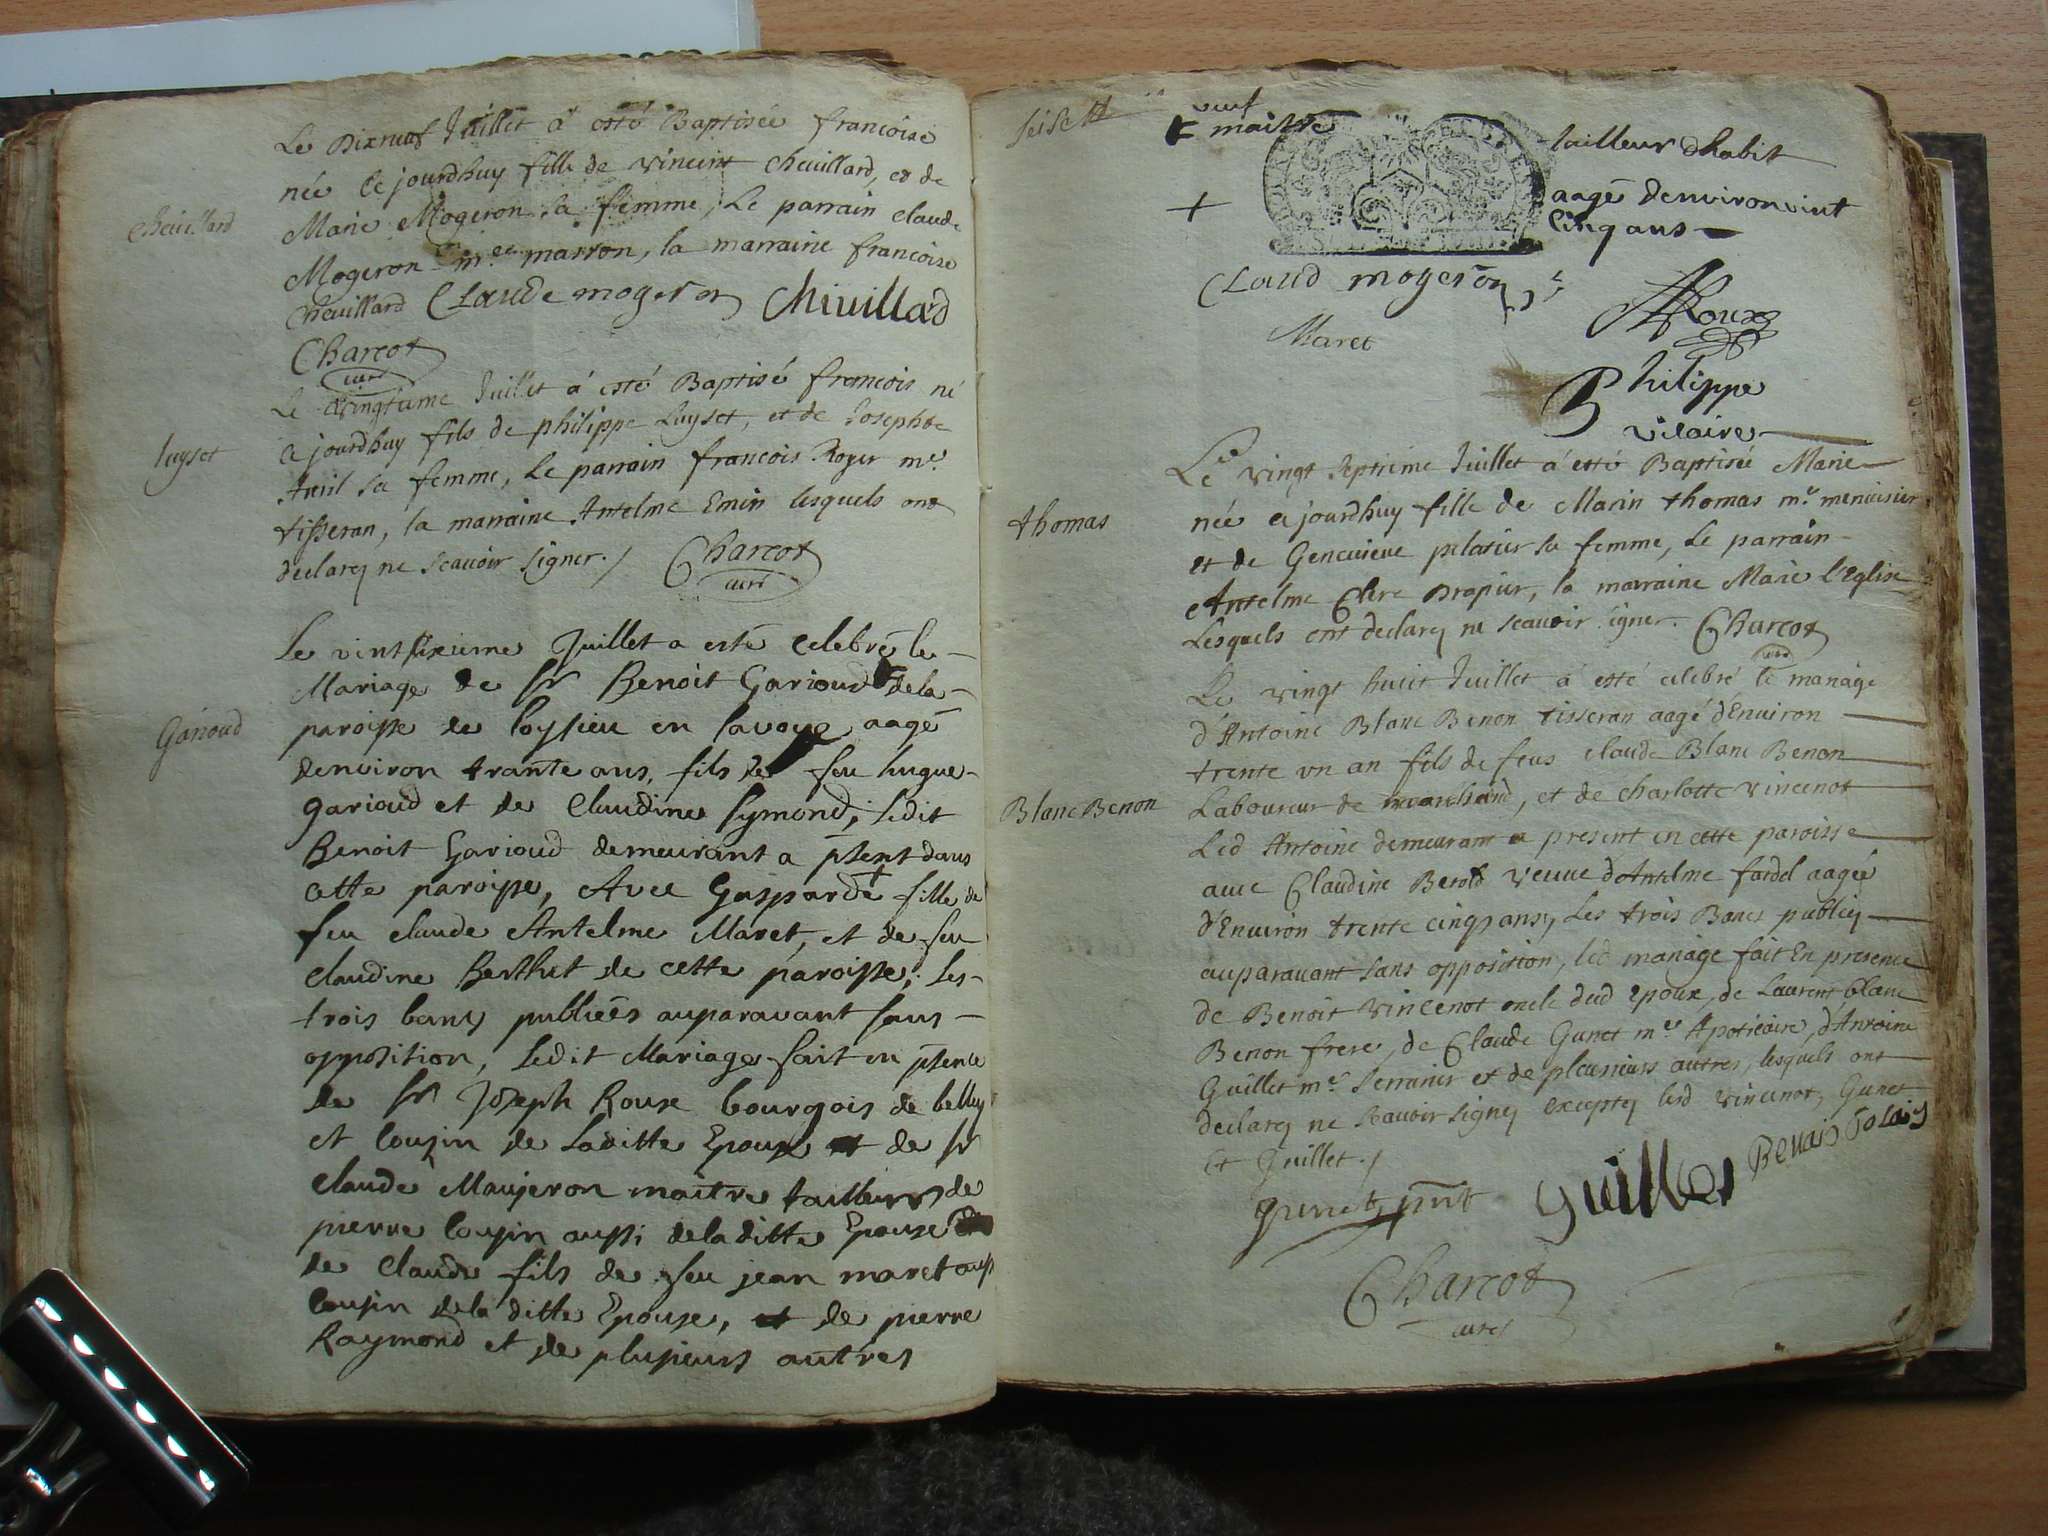 Le Dixneuf Juillet á esté Baptisée francoise
née ce jourdhuy fille de vincent Cheuillard, et de
Marie Mogeron sa femme, Le parrain claude
Mogeron marron, la marraine francoise
Cheuillard Claude mogeron Chivillard
Charcot
curé
Cheuillard
Le vingtieme Juillet á esté Baptisé francois né
ce jourdhuy fils de philippe Luyset, et de Josephte
sa femme, Le parrain francois Roger me.
tisseran, la marraine Antelme Emin lesquels ont
declarez ne scauoir signer. / Charcot
curé
luyset
Le vintsixieme Juillet a esté celebré le
Mariage de sr Benoit Garioud de la
paroisse de loysieu en savoye aagé
denviron trante ans, fils de feu hugue
garioud et de Claudine symond, ledit
Benoit Garioud demeurant a pnt dans
cette paroisse, Avec Gasparde + fille de
feu claude Antelme Maret, et de feu
claudine Berthet de cette paroisse, les
trois bans publiées auparavant sans
opposition, ledit Mariage fait en pnce
de sr Joseph Roux bourgois de belley
et cousin de laditte Epouse et de sr
claude Maujeron maitre tailleur de
pierre cousin aussi de laditte Epouse
de Claude fils de feu jean maret aussi
cousin de la ditte Epouse, et de pierre
Raymond et de plusieurs autres
Garioud
seise
maitre
tailleur dhabit
+
aagé denviron vint
cinq ans
Claud mogeron
Roux
Maret
Philippe
vilaire
Le vingt septieme Juillet á esté Baptisée Marie
née ce jourdhuy fille de Marin thomas me. menuisier
et de Geneuieue sa femme, Le parrain
Antelme Clerc Drapier, la marraine Marie l'Eglise
Lesquels ont declarez ne scauoir signer. Charcot
curé
thomas
Le vingt huit Juillet á esté celebré le mariage
d'Antoine Blanc Benon tisseran aagé d'Enuiron
trente vn an fils de feus claude Blanc Benon
Laboureur de marchand, et de charlotte vincenot
Led Antoine demeurant a present en cette paroisse
auec Claudine Berold veuue d'Antelme fardel aagée
d'Enuiron trente cinq ans, Les trois Bancs publiez
auparauant sans opposition, led mariage fait En presence
de Benoit vincenot oncle dud Epoux, de Laurent blanc
Benon frere, de Claude Gunet me Apoticaire, d'Antoine
Guillet me. Serrurier et de plusieurs autres, lesquels ont
declarez ne scauoir signer exceptez lesd vincenot, Gunet
Et Guillet. /
Blanc Benon
gunet pnt Guillet
Charcot
curé